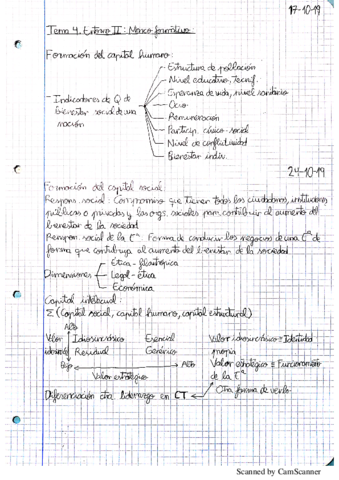 17-10-19
Tema 4. Entorno II: Marco formativo
Formación del capital humano:
- Indicadores de Q de bienestar social de una nación
- Estructura de población
- Nivel educativo, Tecnif.
- Esperanza de vida, nivel sanitario
- Ocio
- Remuneración
- Particip. cívico-social
- Nivel de conflictividad
- Bienestar indiv.
24-10-19
Formación del capital social:
Respons. social: Compromiso que tienen todos los ciudadanos, instituciones
públicas o privadas y las orgs. sociales para contribuir al aumento del
bienestar de la sociedad
Respon. social de la Cª: Forma de conducir los negocios de una Cª de
forma que contribuya al aumento del bienestar de la sociedad.
Dimensiones
Ética - filantrópica
Legal - ética
Económica
Capital intelectual:
Σ (Capital social, capital humano, capital estructural)
Alto
Valor Idiosincrásico Esencial
Residual Genérico
Bajo Alto
Valor estratégico
Valor idiosincrásico = Identidad
propia
Valor estratégico = Funcionamiento
de la Cª
Otra forma de verlo
Diferenciación otra. Liderazgo en CT
Scanned by CamScanner